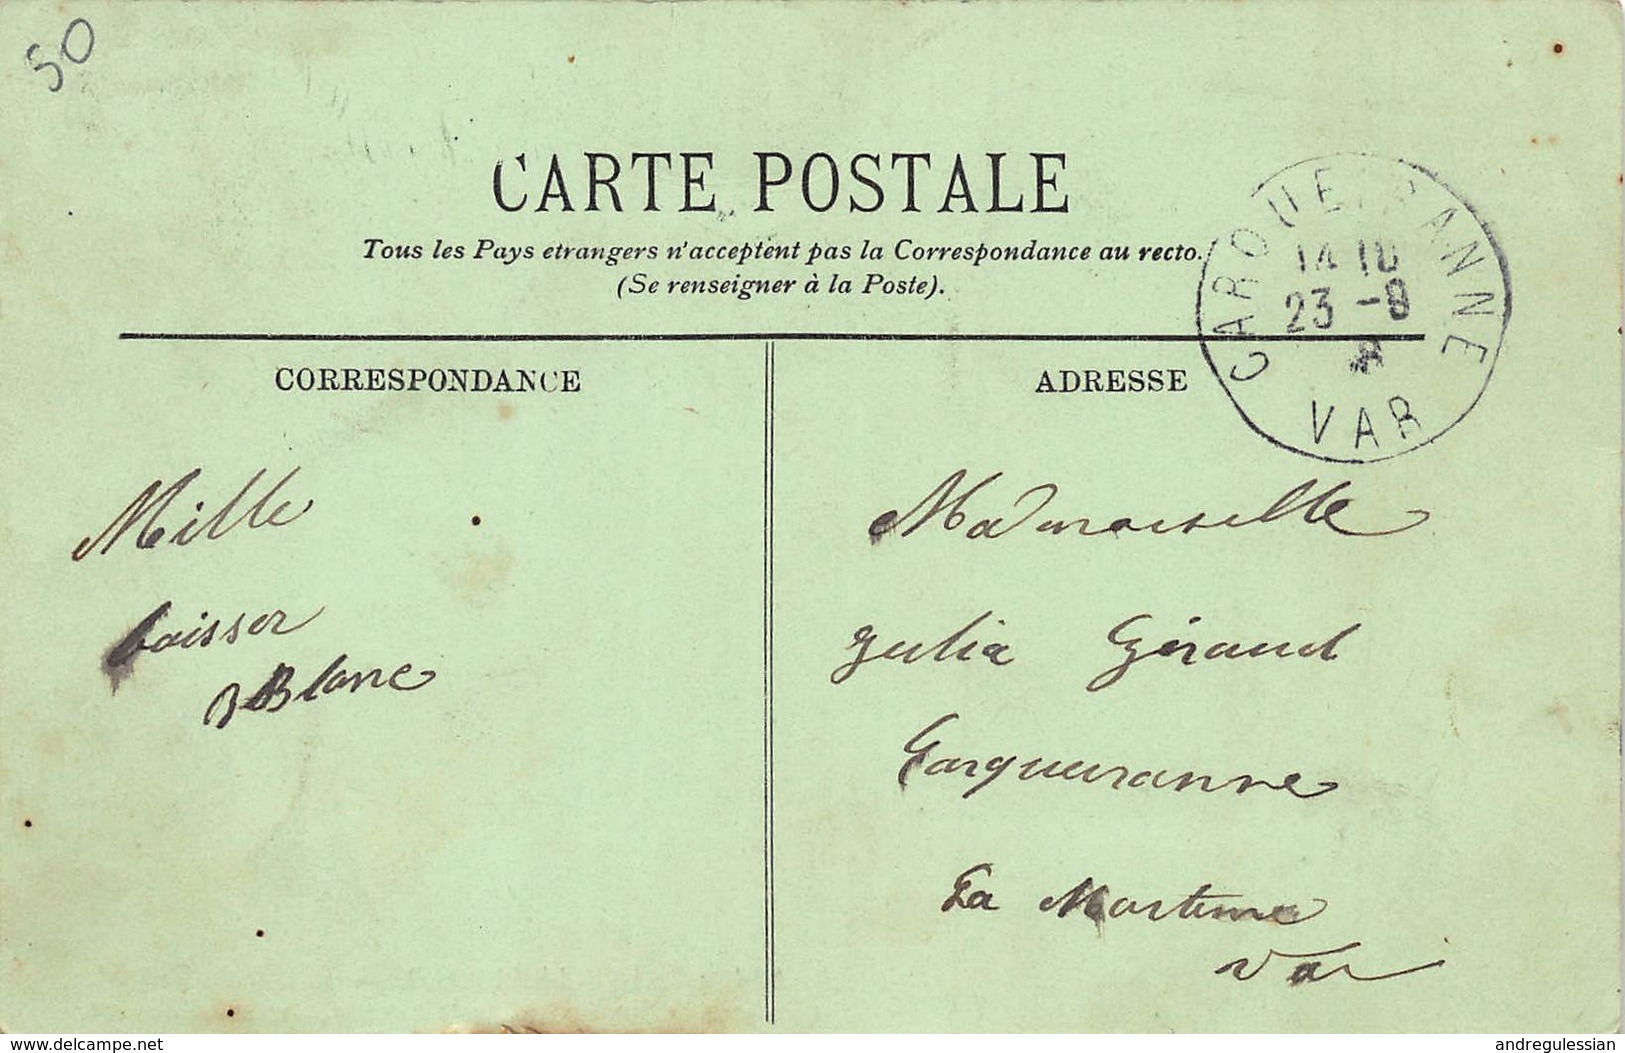 50
CARTE POSTALE
Tous les Pays etrangers n'acceptent pas la Correspondance au recto.
(Se renseigner à la Poste).
CARQUEIRANNE
23 -8
VAR
CORRESPONDANCE
ADRESSE
Mille
baisser
Blanc
Mademoiselle
Julia Géraud
Carqueiranne
La
Var
www.delcampe.net
andregulessian